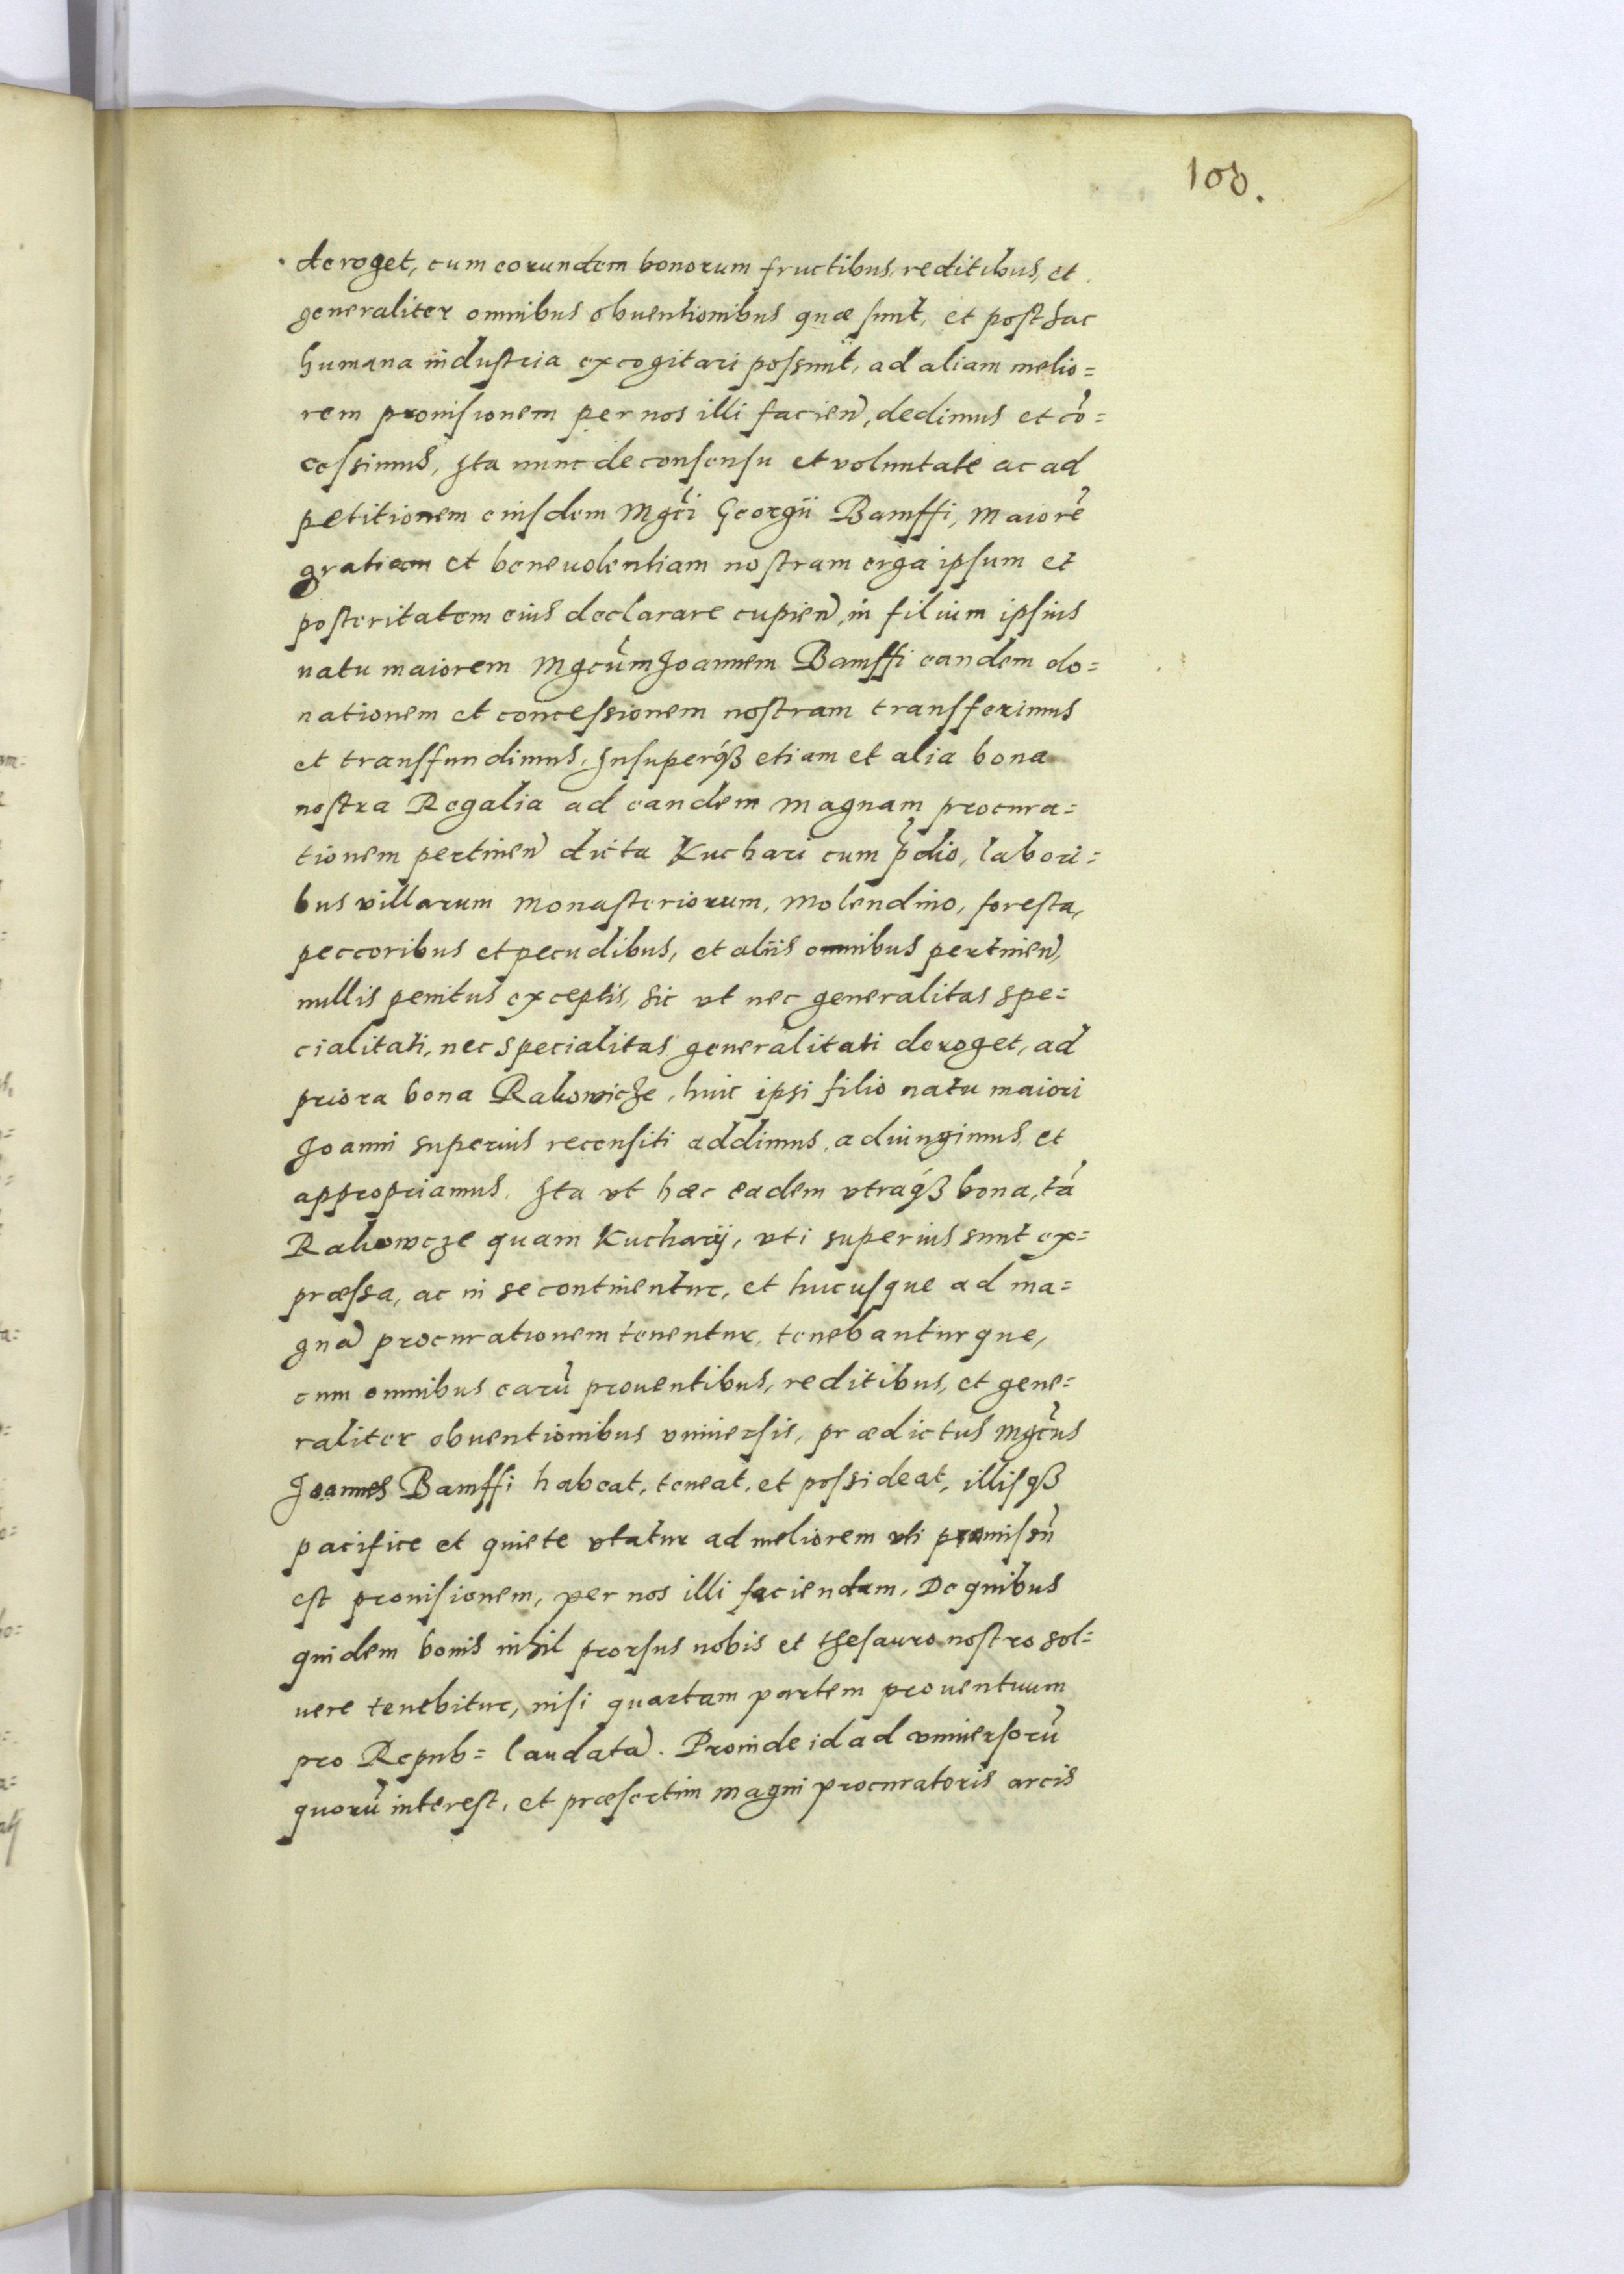 108.
deroget, cum eorundem bonorum fructibus, reditibus, et
generaliter omnibus obuentionibus quæ sunt, et posthac
humana industria excogitari possunt, ad aliam melio=
rem prouisionem per nos illi facien̄, dedimus et cō=
cessimus, Ita nunc de consensu et voluntate ac ad
petitionem eiusdem Mgc̄i Georgii Bamffi, Maiorē
gratiam et beneuolentiam nostram erga ipsum et
posteritatem eius declarare cupien̄, in filium ipsius
natu maiorem Mgcūm Joannem Bamffi eandem do=
nationem et concessionem nostram transferimus
et transfundimus, Insuperqꝫ etiam et alia bona
nostra Regalia ad eandem magnam procura=
tionem pertinen̄ dicta Kuchari cum p̄dio, labori=
bus villarum monasteriorum, molendino, foresta,
peccoribus et pecudibus, et aliis omnibus pertinen̄,
nullis penitus exceptis, sic vt nec generalitas spe=
cialitati, nec specialitas generalitati deroget, ad
priora bona Rakowicze, huic ipsi filio natu maiori
Joanni superius recensiti addimus, adiungimus, et
appropriamus, Ita vt hæc eadem vtraqꝫ bona, tā
Rakowcze quam Kucharij, vti superius sunt ex=
præssa, ac in se continentur, et hucusque ad ma=
gnā procurationem tenentur, tenebanturque,
cum omnibus earū prouentibus, reditibus, et gene=
raliter obuentionibus vniuersis, prædictus Mgc̄us
Joannes Bamffi habeat, teneat, et possideat, illisqꝫ
pacifice et quiete vtatur ad meliorem vti promissū
est prouisionem, per nos illi faciendam, De quibus
quidem bonis nihil prorsus nobis et thesauro nostro sol=
uere tenebitur, nisi quartam partem prouentuum
pro Repub= laudatā. Proinde id ad vniuersorū
quorū interest, et præsertim magni procuratoris arcis